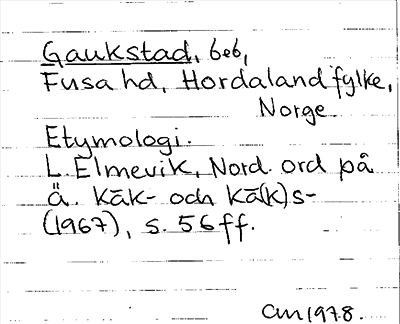 Gaukstad, beb,
Fusa hd, Hordaland fylke,
Norge
Etymologi.
L. Elmevik, Nord. ord på
ä. kāk- och kā(k)s-
(1967), s. 56 ff.
CM 1978.